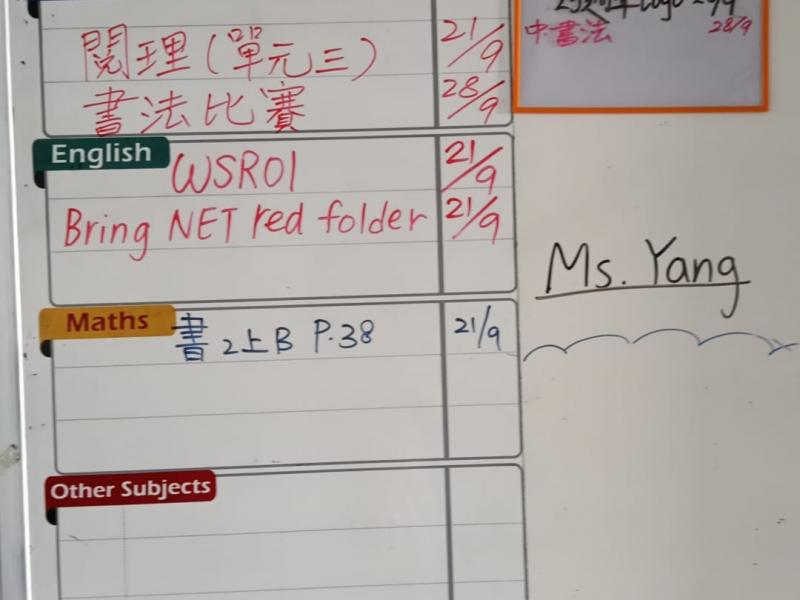 閱理(單元三) 21/9
書法比賽 28/9
English
WSR01 21/9
Bring NET red folder 21/9
Maths
書 2上B P.38 21/9
Other Subjects
中書法 28/9
Ms. Yang